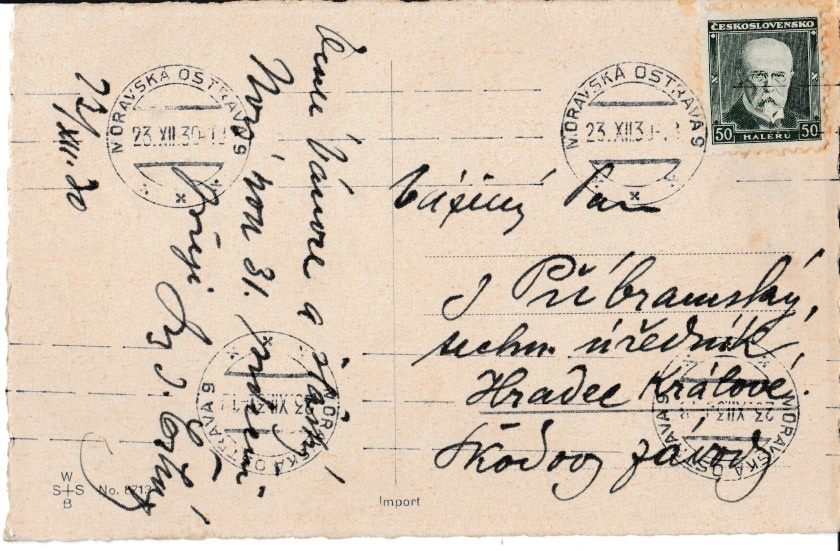 Veselé Vánoce a šťastný
Nový rok 31.
přeje
22/XII. 30
MORAVSKÁ OSTRAVA 9
23.XII.30
MORAVSKÁ OSTRAVA 9
23.XII.30
ČESKOSLOVENSKO
50 HALÉŘŮ 50
Vážený Pan
J Příbramský,
techn. úředník,
Hradec Králové.
Škodovy závody
MORAVSKÁ OSTRAVA 9
23.XII.3
MORAVSKÁ OSTRAVA 9
23.XII.3
W
S S
B
No. 8713
Import